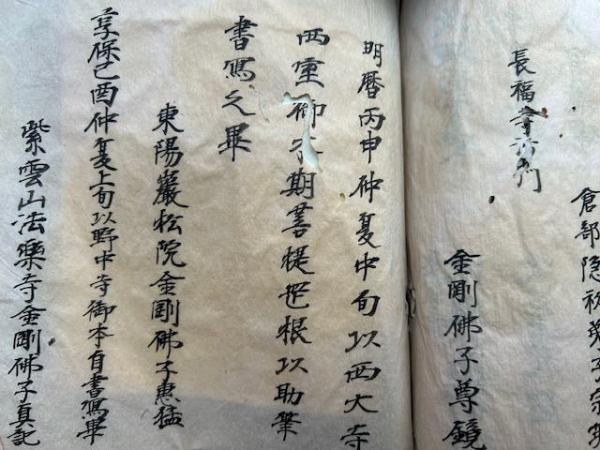 倉部隐
長福寺
金剛佛子尊鏡
明暦丙申仲夏中旬以西大寺
西室御本期菩提根以助筆
書寫之畢
東陽巖松院金剛佛子惠猛
享保己酉仲夏上旬以野中寺御本自書寫畢
紫雲山法樂寺金剛佛子真記